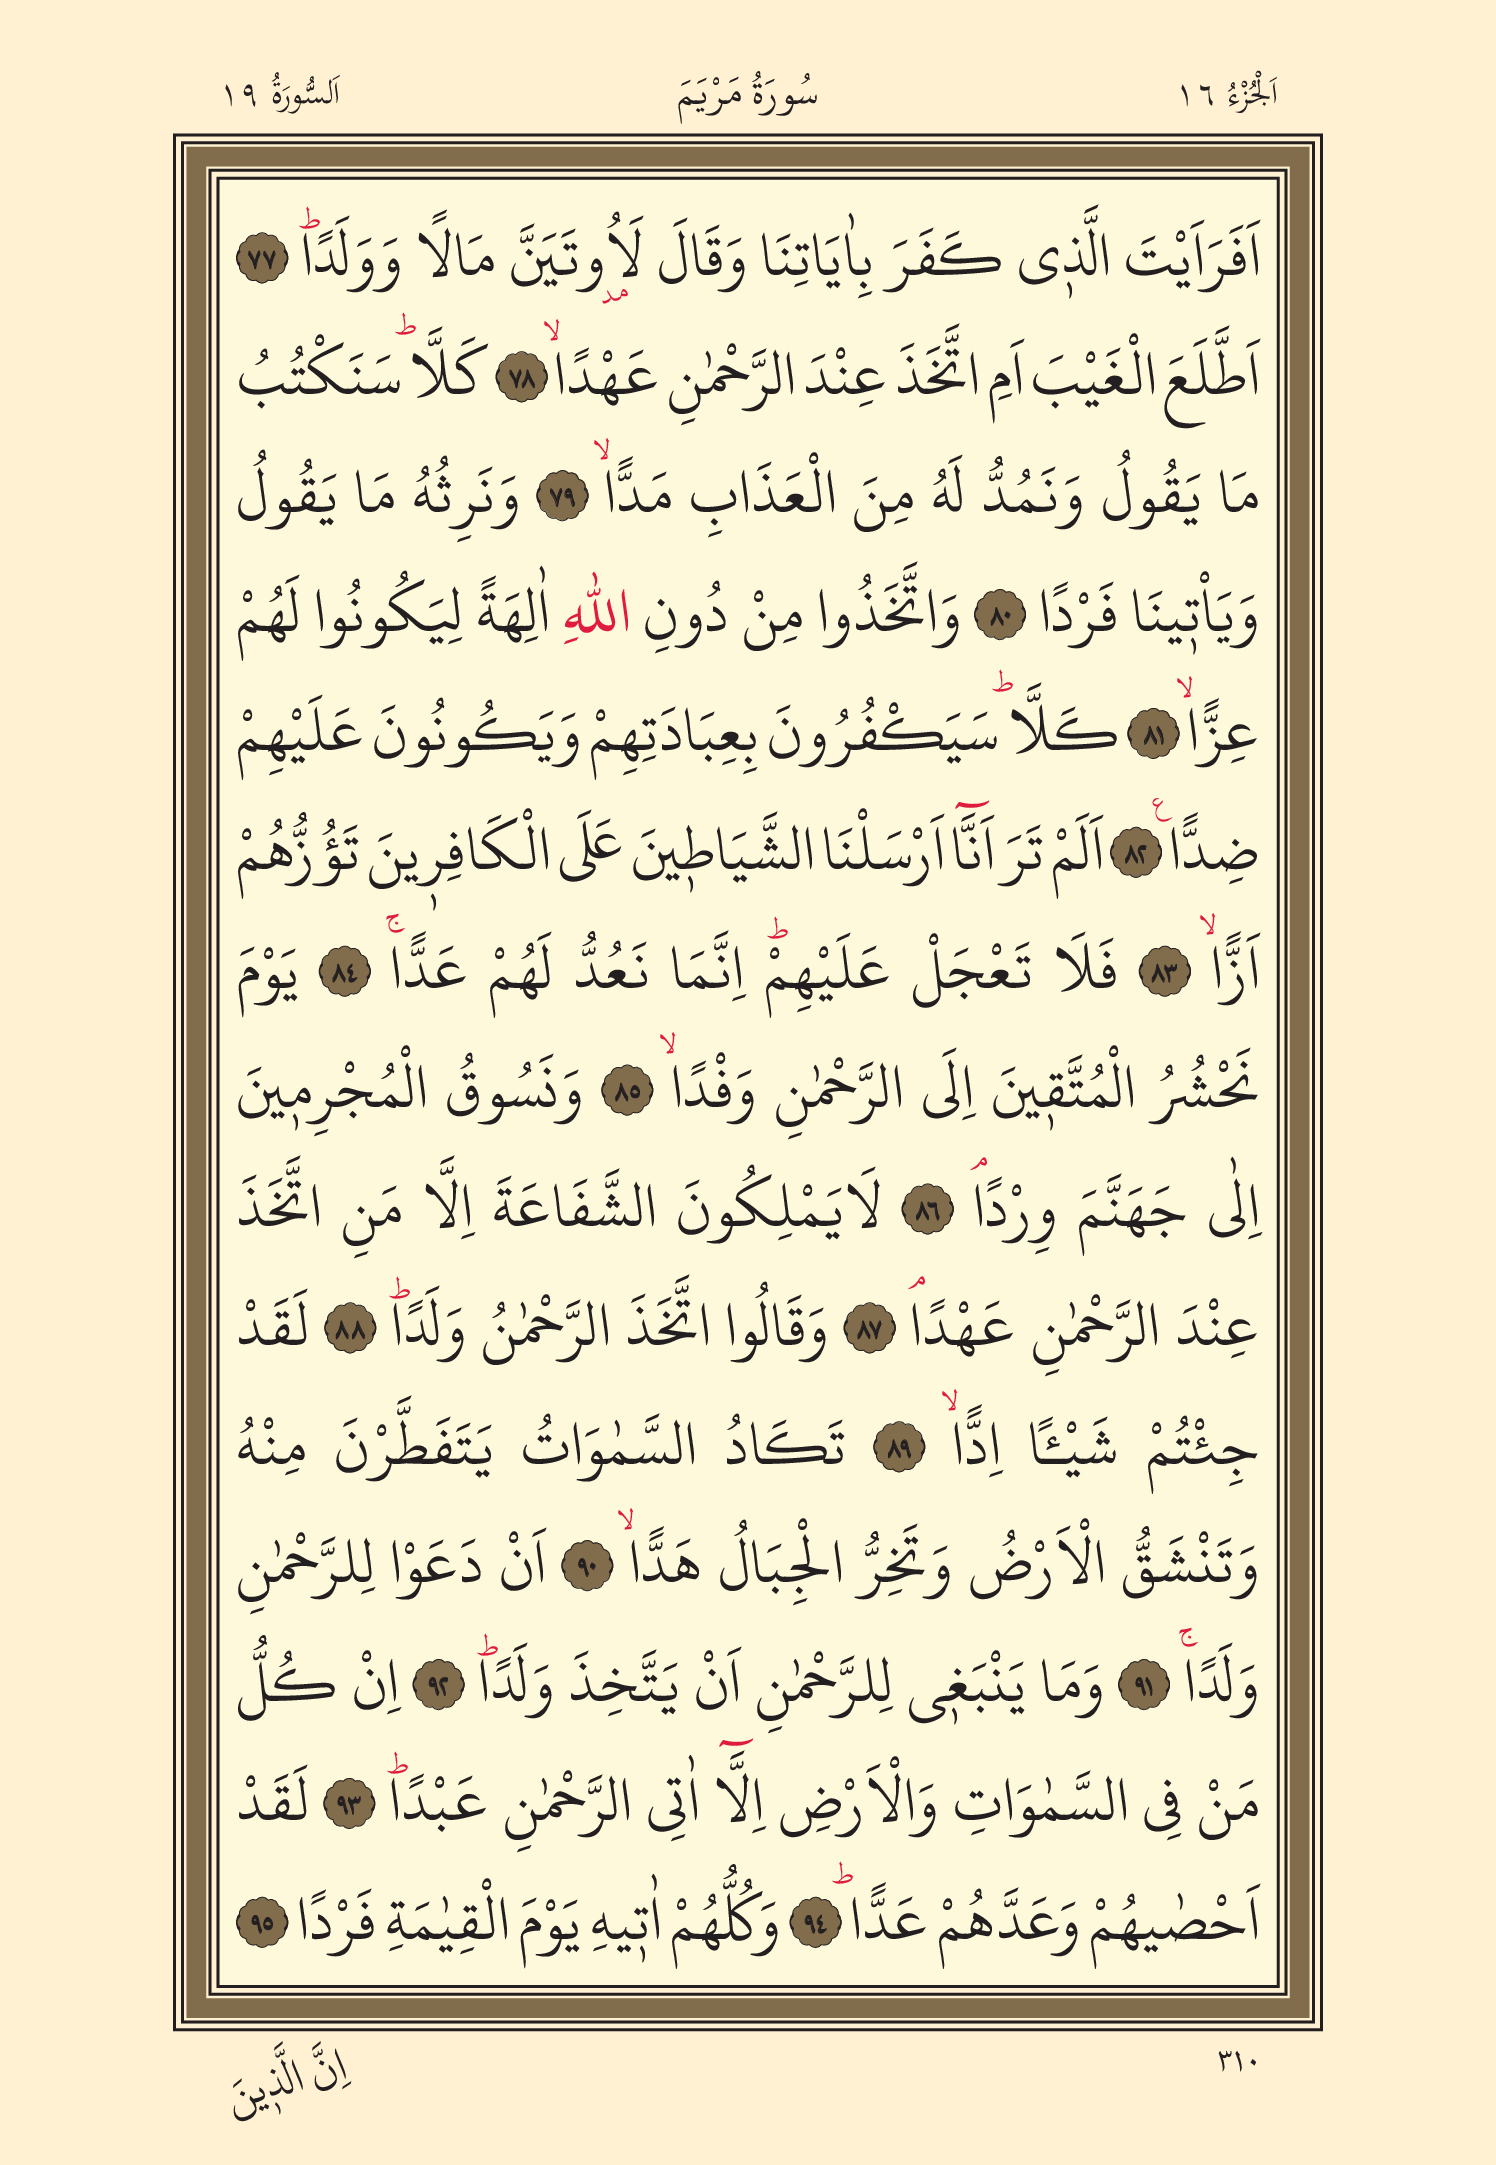 اَلْجُزْءُ ١٦
سُورَةُ مَرْيَمَ
اَلسُّورَةُ ١٩
اَفَرَاَيْتَ الَّذ۪ى كَفَرَ بِاٰيَاتِنَا وَقَالَ لَاُوتَيَنَّ مَالًا وَوَلَدًاۜ ﴿٧٧﴾
اَطَّلَعَ الْغَيْبَ اَمِ اتَّخَذَ عِنْدَ الرَّحْمٰنِ عَهْدًاۙ ﴿٧٨﴾ كَلَّاۜ سَنَكْتُبُ
مَا يَقُولُ وَنَمُدُّ لَهُ مِنَ الْعَذَابِ مَدًّاۙ ﴿٧٩﴾ وَنَرِثُهُ مَا يَقُولُ
وَيَاْت۪ينَا فَرْدًا ﴿٨٠﴾ وَاتَّخَذُوا مِنْ دُونِ اللّٰهِ اٰلِهَةً لِيَكُونُوا لَهُمْ
عِزًّاۙ ﴿٨١﴾ كَلَّاۜ سَيَكْفُرُونَ بِعِبَادَتِهِمْ وَيَكُونُونَ عَلَيْهِمْ
ضِدًّاع ﴿٨٢﴾ اَلَمْ تَرَ اَنَّٓا اَرْسَلْنَا الشَّيَاط۪ينَ عَلَى الْكَافِر۪ينَ تَؤُزُّهُمْ
اَزًّاۙ ﴿٨٣﴾ فَلَا تَعْجَلْ عَلَيْهِمْۜ اِنَّمَا نَعُدُّ لَهُمْ عَدًّاۚ ﴿٨٤﴾ يَوْمَ
نَحْشُرُ الْمُتَّق۪ينَ اِلَى الرَّحْمٰنِ وَفْدًاۙ ﴿٨٥﴾ وَنَسُوقُ الْمُجْرِم۪ينَ
اِلٰى جَهَنَّمَ وِرْدًاۢ ﴿٨٦﴾ لَا يَمْلِكُونَ الشَّفَاعَةَ اِلَّا مَنِ اتَّخَذَ
عِنْدَ الرَّحْمٰنِ عَهْدًاۢ ﴿٨٧﴾ وَقَالُوا اتَّخَذَ الرَّحْمٰنُ وَلَدًاۜ ﴿٨٨﴾ لَقَدْ
جِئْتُمْ شَيْـًٔا اِدًّاۙ ﴿٨٩﴾ تَكَادُ السَّمٰوَاتُ يَتَفَطَّرْنَ مِنْهُ
وَتَنْشَقُّ الْاَرْضُ وَتَخِرُّ الْجِبَالُ هَدًّاۙ ﴿٩٠﴾ اَنْ دَعَوْا لِلرَّحْمٰنِ
وَلَدًاۚ ﴿٩١﴾ وَمَا يَنْبَغ۪ى لِلرَّحْمٰنِ اَنْ يَتَّخِذَ وَلَدًاۜ ﴿٩٢﴾ اِنْ كُلُّ
مَنْ فِى السَّمٰوَاتِ وَالْاَرْضِ اِلَّٓا اٰتِى الرَّحْمٰنِ عَبْدًاۜ ﴿٩٣﴾ لَقَدْ
اَحْصٰيهُمْ وَعَدَّهُمْ عَدًّاۜ ﴿٩٤﴾ وَكُلُّهُمْ اٰت۪يهِ يَوْمَ الْقِيٰمَةِ فَرْدًا ﴿٩٥﴾
٣١٠
اِنَّ الَّذ۪ينَ